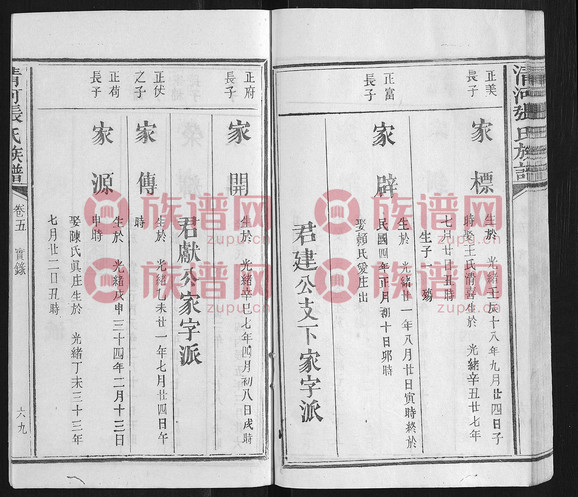 清河張氏族譜
正美
長子
家標
生於 光緒壬辰十八年九月廿四日子
時娶王氏清 生於 光緒辛丑廿七年
七月廿 日丑時
生子
正富
長子
家辟
生於 光緒廿一年八月廿日寅時終於
民國四年正月初十日卯時
娶顏氏愛庄出
君建公支下家字派
正府
長子
家開
生於 光緒辛巳七年四月初八日戌時
君獻公家字派
正伏
之子
家傳
生於 光緒乙未廿一年七月廿四日午
時
正荷
長子
家源
生於 光緒戊申三十四年二月十三日
申時
娶陳氏眞庄生於 光緒丁未三十三年
七月廿二日丑時
清河張氏族譜
卷五 實錄
六九
族谱网
www.zupu.cn
族谱网
www.zupu.cn
族谱网
www.zupu.cn
族谱网
www.zupu.cn